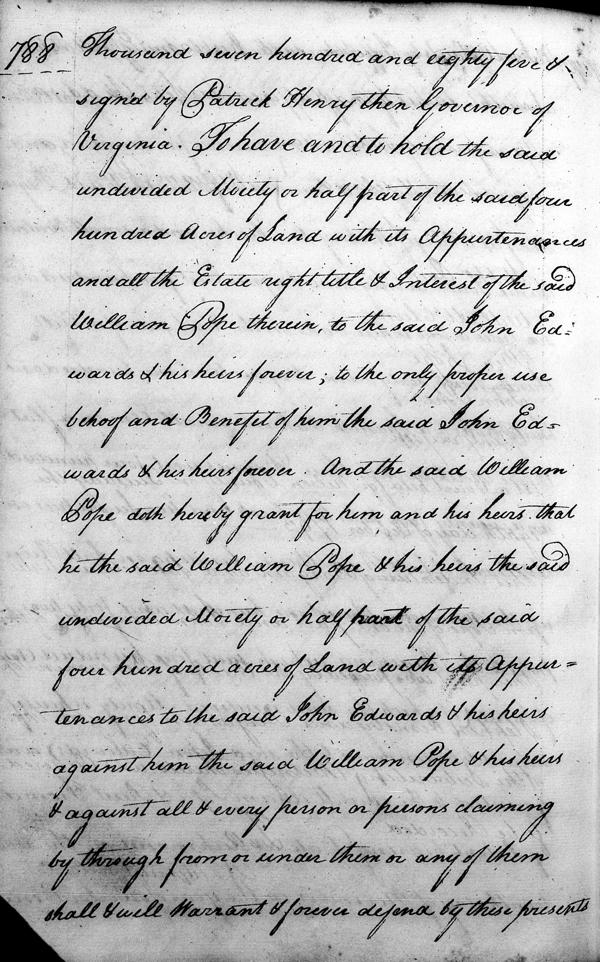 788
Thousand seven hundred and eighty five &
sign'd by Patrick Henry then Governor of
Virginia. To have and to hold the said
undivided Moiety or half part of the said four
hundred Acres of Land with its Appurtenances
and all the Estate right title & Interest of the said
William Pope therein, to the said John Ed=
wards & his heirs forever; to the only proper use
behoof and Benefit of him the said John Ed=
wards & his heirs forever. And the said William
Pope doth hereby grant for him and his heirs that
he the said William Pope & his heirs the said
undivided Moiety or half part of the said
four hundred acres of Land with its Appur=
tenances to the said John Edwards & his heirs
against him the said William Pope & his heirs
& against all & every person or persons claiming
by through from or under them or any of them
shall & will Warrant & forever defend by these presents